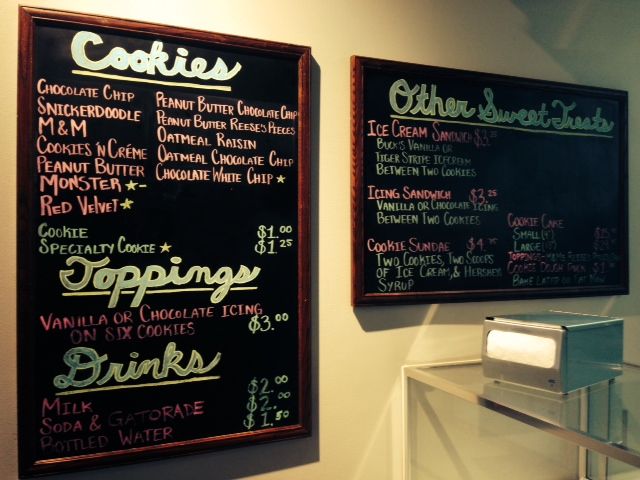 Cookies
CHOCOLATE CHIP
SNICKERDOODLE
M&M
COOKIES 'N CRÉME
PEANUT BUTTER
MONSTER ★-
RED VELVET ★
PEANUT BUTTER CHOCOLATE CHIP
PEANUT BUTTER REESE'S PIECES
OATMEAL RAISIN
OATMEAL CHOCOLATE CHIP
CHOCOLATE WHITE CHIP ★
COOKIE $1.00
SPECIALTY COOKIE ★ $1.25
Toppings
VANILLA OR CHOCOLATE ICING
ON SIX COOKIES $3.00
Drinks
MILK $2.00
SODA & GATORADE $2.00
BOTTLED WATER $1.50
Other Sweet Treats
ICE CREAM SANDWICH $3.25
BUCK'S VANILLA OR
TIGER STRIPE ICECREAM
BETWEEN TWO COOKIES
ICING SANDWICH $3.25
VANILLA OR CHOCOLATE ICING
BETWEEN TWO COOKIES
COOKIE SUNDAE $4.75
TWO COOKIES, TWO SCOOPS
OF ICE CREAM, & HERSHEY
SYRUP
COOKIE CAKE
SMALL
LARGE
TOPPINGS-
COOKIE DOUGH
BAKE LATER OR EAT NOW